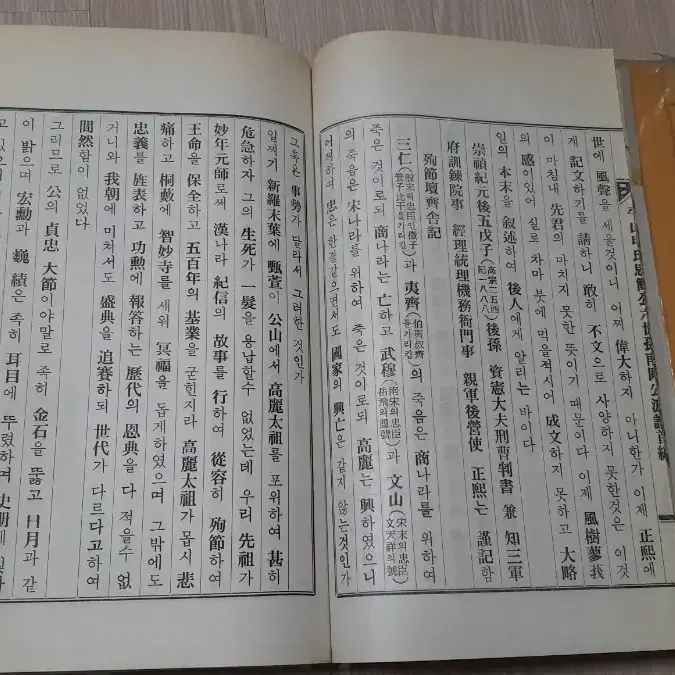 平山申氏思簡公六世孫 公派譜首編
世에 風聲을 세울것이니 어찌 偉大하지 아니한가 이제 正熙에
게 記文하기를 請하니 敢히 不文으로 사양하지 못한것은 이것
이 마침내 先君의 마치지 못한 뜻이기 때문이다 이제 風樹蓼莪
의 感이 있어 실로 차마 붓에 먹을 적시어 成文하지 못하고 大略
일의 本末을 敘述하여 後人에게 알리는 바이다
崇禎紀元後五戊子(高宗二五西紀一八八八) 後孫 資憲大夫刑曹判書 兼 知三軍
府訓鍊院事 經理統理機務衙門事 親軍後營使 正熙는 謹記함
殉節壇齊舍記
三仁(殷末의忠臣인微子箕子比干을가리킴)과 夷齊(伯夷叔齊를가리킴)의 죽음은 商나라를 위하여
죽은 것이로되 商나라는 亡하고 武穆(南宋의忠臣岳飛의諡號)과 文山(宋末의忠臣文天祥의號)
의 죽음은 宋나라를 위하여 죽은 것이로되 高麗는 興하였으니
어찌하여 忠은 한결같으면서도 國家의 興亡은 같지 않는것인가
그 혹은 事勢가 달라서 그러한 것인가
일찌기 新羅末葉에 甄萱이 公山에서 高麗太祖를 포위하여 甚히
危急하자 그의 生死가 一髮을 용납할수 없었는데 우리 先祖가
妙年元師로써 漢나라 紀信의 故事를 行하여 從容히 殉節하여
王命을 保全하고 五百年의 基業을 굳힌지라 高麗太祖가 몹시 悲
痛하고 桐藪에 智妙寺를 세워 冥福을 돕게하였으며 그밖에도
忠義를 旌表하고 功勳에 報答하는 歷代의 恩典을 다 적을수 없
거니와 我朝에 미쳐서도 盛典을 追賽하되 世代가 다르다고하여
間然함이 없었다
그러므로 公의 貞忠 大節이야말로 족히 金石을 뚫고 日月과 같
이 밝으며 宏勳과 巍績은 족히 耳目에 뚜렸하며 史册에